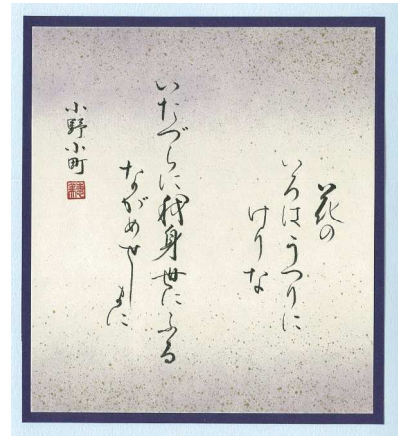 花の
いろはうつりに
けりな
いたづらに我身世にふる
ながめせしまに
小野小町